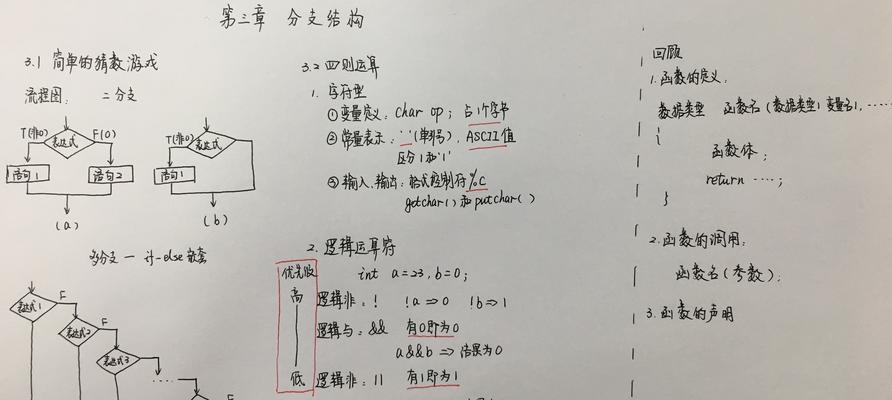 第三章 分支结构
3.1 简单的猜数游戏
流程图： 二分支
T(非0) 表达式 F(0)
语句1 语句2
(a)
T(非0) 表达式
语句1
(b)
多分支 — if-else嵌套
表达式1 F
表达式2 F
表达式3
F
3.2 四则运算
1. 字符型
①变量定义：char op； 占1个字节
②常量表示：' '(单引号)，ASCII值
区分1和'1'
③输入、输出：格式控制符%C
getchar()和putchar()
2. 逻辑运算符
优先级 int a=23, b=0;
高 逻辑非：! !a⇒0 !b⇒1
逻辑与：&& 有0即为0
a&&b⇒结果为0
低 逻辑非：|| 有1即为1
回顾
1.函数的定义.
数据类型 函数名(数据类型1 变量名1, ……
{
函数体；
return ……;
}
2.函数的调用：
函数名(参数);
3.函数的声明